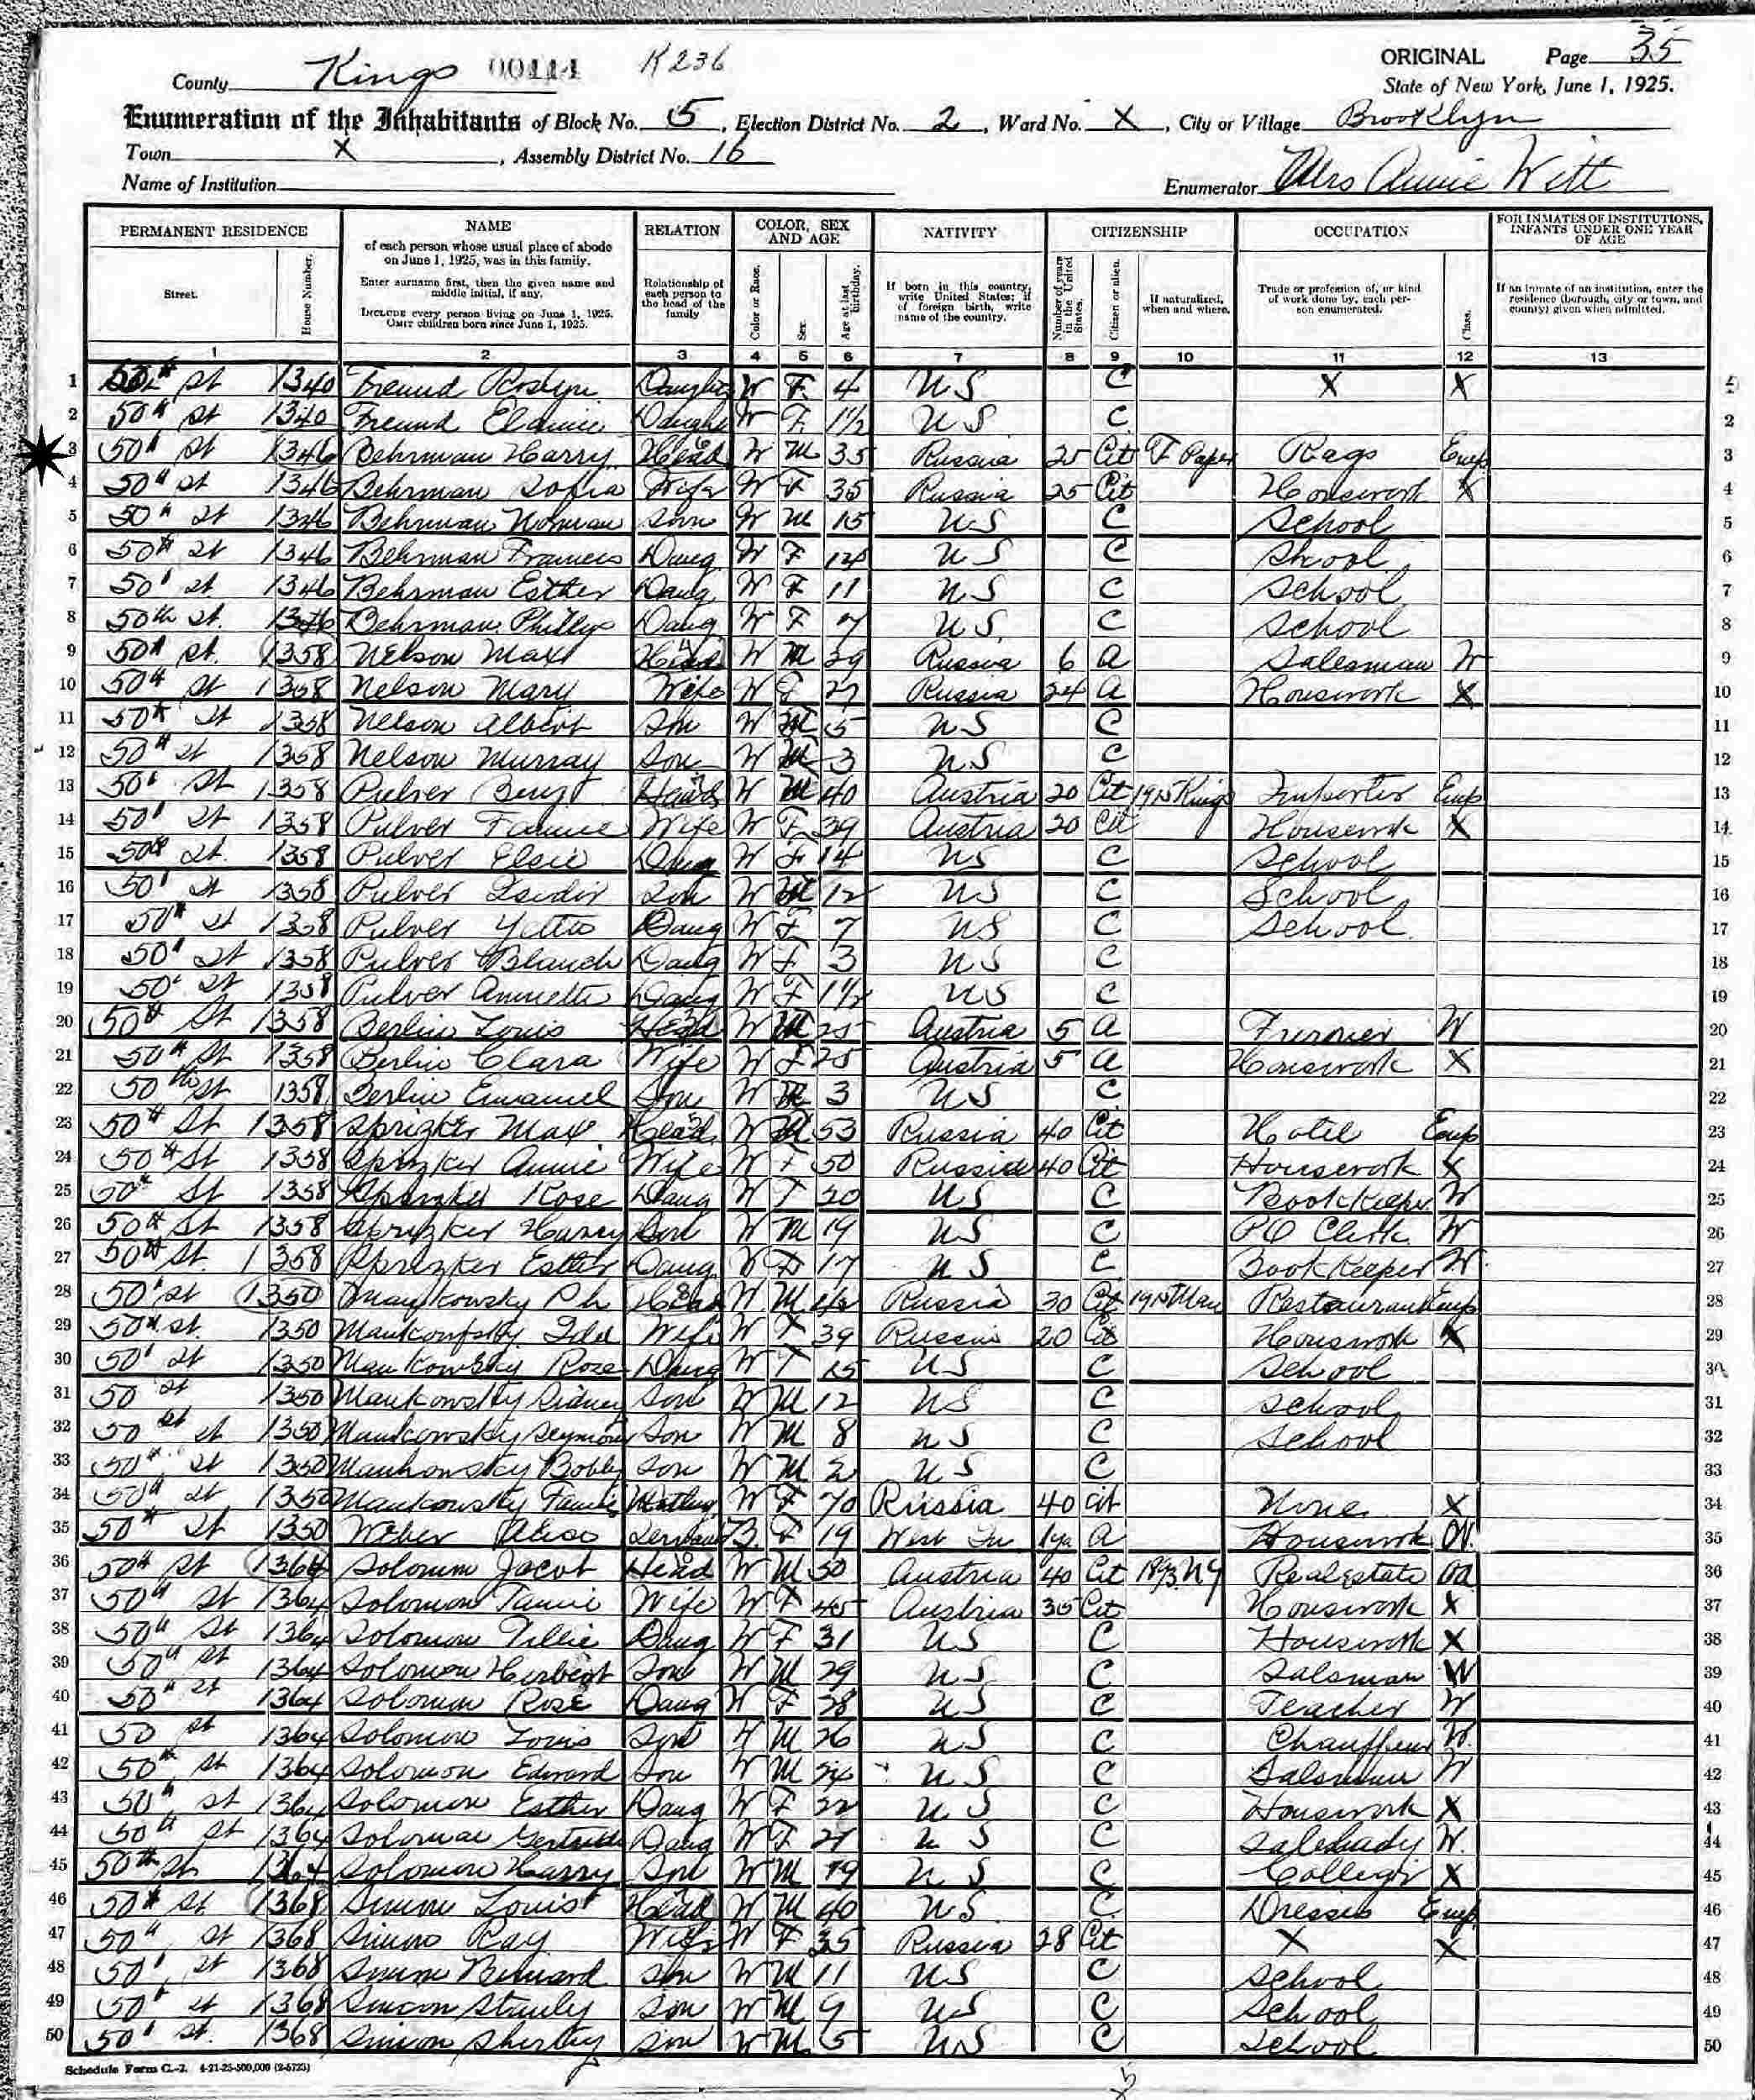 County Kings 00444 K236 ORIGINAL Page 35
State of New York, June 1, 1925.
Enumeration of the Inhabitants of Block No. 5, Election District No. 2, Ward No. X, City or Village Brooklyn
Town X, Assembly District No. 16
Name of Institution Enumerator Mrs Annie Witt
PERMANENT RESIDENCE NAME RELATION COLOR, SEX AND AGE NATIVITY CITIZENSHIP OCCUPATION FOR INMATES OF INSTITUTIONS, INFANTS UNDER ONE YEAR OF AGE
Street. House Number. of each person whose usual place of abode on June 1, 1925, was in this family. Enter surname first, then the given name and middle initial, if any. INCLUDE every person living on June 1, 1925. OMIT children born since June 1, 1925. Relationship of each person to the head of the family Color or Race. Sex. Age at last birthday. If born in this country, write United States; if of foreign birth, write name of the country. Number of years in the United States. Citizen or alien. If naturalized, when and where. Trade or profession of, or kind of work done by, each person enumerated. Class. If an inmate of an institution, enter the residence (borough, city or town, and county) given when admitted.
1 2 3 4 5 6 7 8 9 10 11 12 13
1 50th St 1340 Freund Roslyn Daughter W F 4 U S C X X
2 50th St 1340 Freund Elainie Daughe W F 1½ U S C 2
3 50th St 1346 Behrman Harry Head W M 35 Russia 25 Cit F Paper Rags Emp 3
4 50th St 1346 Behrman Sofia Wife W F 35 Russia 25 Cit Houswork X 4
5 50th St 1346 Behrman Norman Son W M 15 U S C School 5
6 50th St 1346 Behrman Frances Daug W F 14 U S C School 6
7 50th St 1346 Behrman Esther Daug W F 11 U S C School 7
8 50th St. 1346 Behrman Phillys Daug W F 7 U S C School 8
9 50th St. 1358 Nelson Max Head W M 29 Russia 6 A Salesman W 9
10 50th St 1358 Nelson Mary Wife W F 27 Russia 24 A Houswork X 10
11 50th St 1358 Nelson Albert Son W M 5 U S C 11
12 50th St 1358 Nelson Murray Son W M 3 U S C 12
13 50th St 1358 Pulver Benj Head W M 40 Austria 20 Cit 1915 Kings Importer Emp 13
14 50th St 1358 Pulver Fannie Wife W F 39 Austria 20 Cit Houswork X 14
15 50th St. 1358 Pulver Elsie Daug W F 14 U S C School 15
16 50th St 1358 Pulver Isidor Son W M 12 U S C School 16
17 50th St 1358 Pulver Yetta Daug W F 7 U S C School 17
18 50th St 1358 Pulver Blanch Daug W F 3 U S C 18
19 50th St 1358 Pulver Annette Daug W F 1½ U S C 19
20 50th St 1358 Berlin Louis Head W M 25 Austria 5 A Furrier W 20
21 50th St 1358 Berlin Clara Wife W F 25 Austria 5 A Houswork X 21
22 50th St 1358 Berlin Emanuel Son W M 3 U S C 22
23 50th St 1358 Sprizker Max Head W M 53 Russia 40 Cit Hotel Emp 23
24 50th St 1358 Sprizker Annie Wife W F 50 Russia 40 Cit Housework X 24
25 50th St 1358 Sprizker Rose Daug W F 20 U S C Bookkeeper W 25
26 50th St 1358 Sprizker Harry Son W M 19 U S C PO Clerk W 26
27 50th St. 1358 Sprizker Esther Daug W F 17 U S C Bookkeeper W 27
28 50th St 1350 Mankowsky Ph Head W M Russia 30 Cit 1915 Man Restaurant Emp 28
29 50th St. 1350 Mankowsky Ida Wife W F 39 Russia 20 Cit Houswork X 29
30 50th St 1350 Mankowsky Rose Daug W F 15 U S C School 30
31 50 St 1350 Mankowsky Sidney Son W M 12 U S C School 31
32 50 St 1350 Mankowsky Seymour Son W M 8 U S C School 32
33 50th St 1350 Mankowsky Bobby Son W M 2 U S C 33
34 50th St 1350 Mankowsky Fannie Mother W F 70 Russia 40 Cit None X 34
35 50th St 1350 Weber Servant B F 19 West In 1ya A Houswork W 35
36 50th St 1364 Solomon Jacob Head W M 50 Austria 40 Cit N Y Realestate oa 36
37 50th St 1364 Solomon Fannie Wife W F 45 Austria 35 Cit Houswork X 37
38 50th St 1364 Solomon Tillie Daug W F 31 U S C Houswork X 38
39 50th St 1364 Solomon Herbert Son W M 29 U S C Salsman W 39
40 50th St 1364 Solomon Rose Daug W F 28 U S C Teacher W 40
41 50 St 1364 Solomon Louis Son W M 26 U S C Chauffeur W. 41
42 50th St 1364 Solomon Edward Son W M 24 U S C Salsman W 42
43 50th St 1364 Solomon Esther Daug W F 22 U S C Houswork X 43
44 50th St 1364 Solomon Gertrude Daug W F 21 U S C Saleslady W. 44
45 50th St 1364 Solomon Harry Son W M 19 U S C College X 45
46 50th St 1368 Simon Louis Head W M 40 U S C Dresses Emp 46
47 50th St 1368 Simon Ray Wife W F 35 Russia 28 Cit X X 47
48 50th St 1368 Simon Bernard Son W M 11 U S C School 48
49 50th St 1368 Simon Stanly Son W M 9 U S C School 49
50 50th St. 1368 Simon Shirley Son W M 5 U S C School 50
Schedule Form C.-2. 4-21-25-500,000 (2-5723)